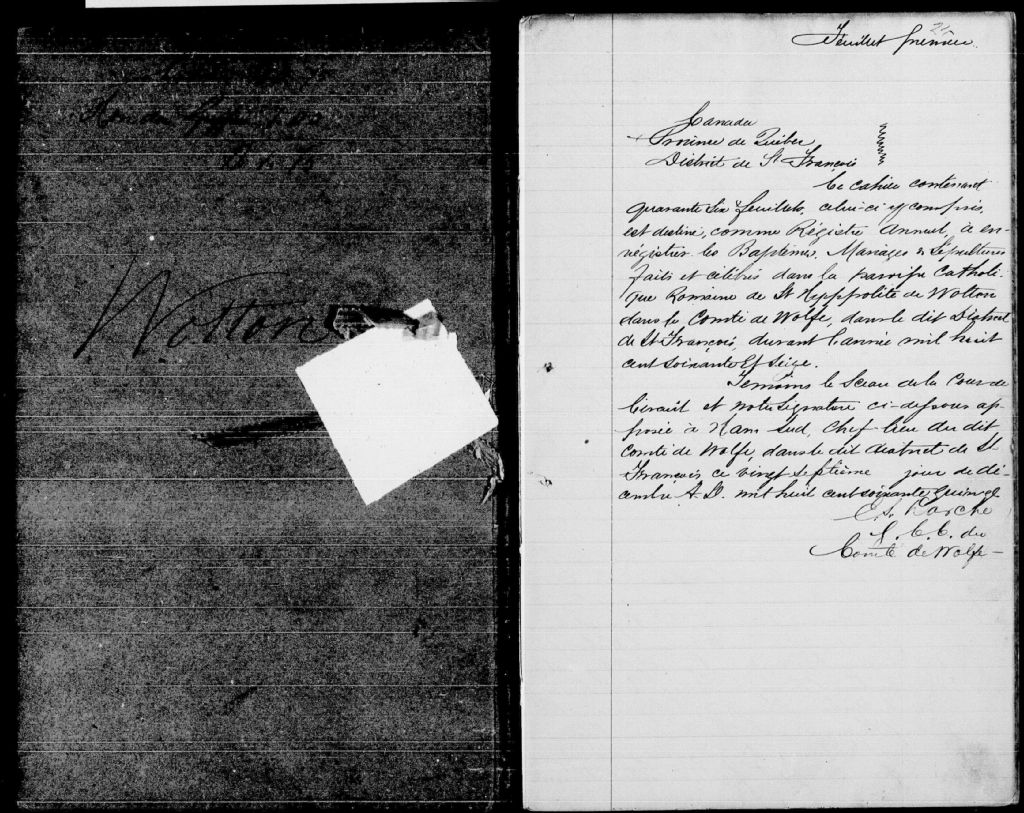 Wotton
Feuillet premier
Canada
Province de Québec
District de St François
Ce cahier contenant
quarante six feuillets, celui-ci y compris,
est destiné, comme Régistre Annuel, à en-
régistrer les Baptêmes, Mariages & Sépultures
faits et célébrés dans la paroisse Catholi-
que Romaine de St Hyppolite de Wotton
dans le Comté de Wolfe, dans le dit District
de St François, durant l'année mil huit
cent soixante et seize.
Temoins le Sceau de la Cour de
Circuit et notre signature ci-dessous ap-
posée à Ham Sud, Chef-lieu du dit
comté de Wolfe, dans le dit district de St
François ce vingt septième jour de dé-
cembre A.D. mil huit cent soixante quinze
C. C. du
Comté de Wolfe -